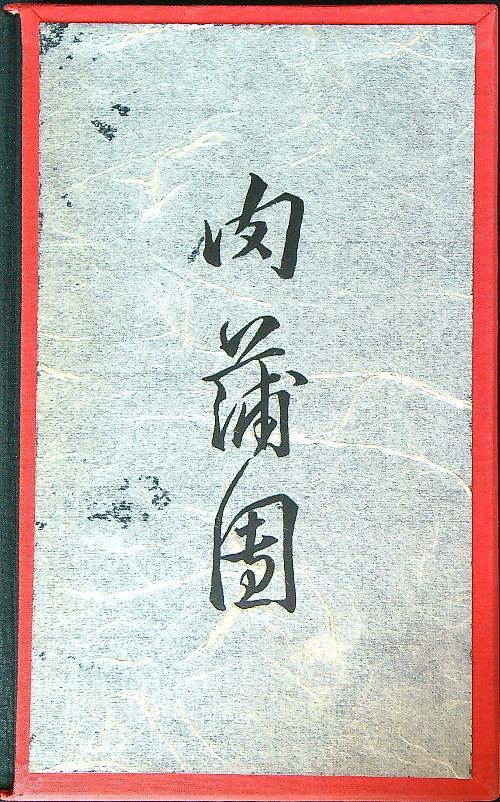 肉蒲團